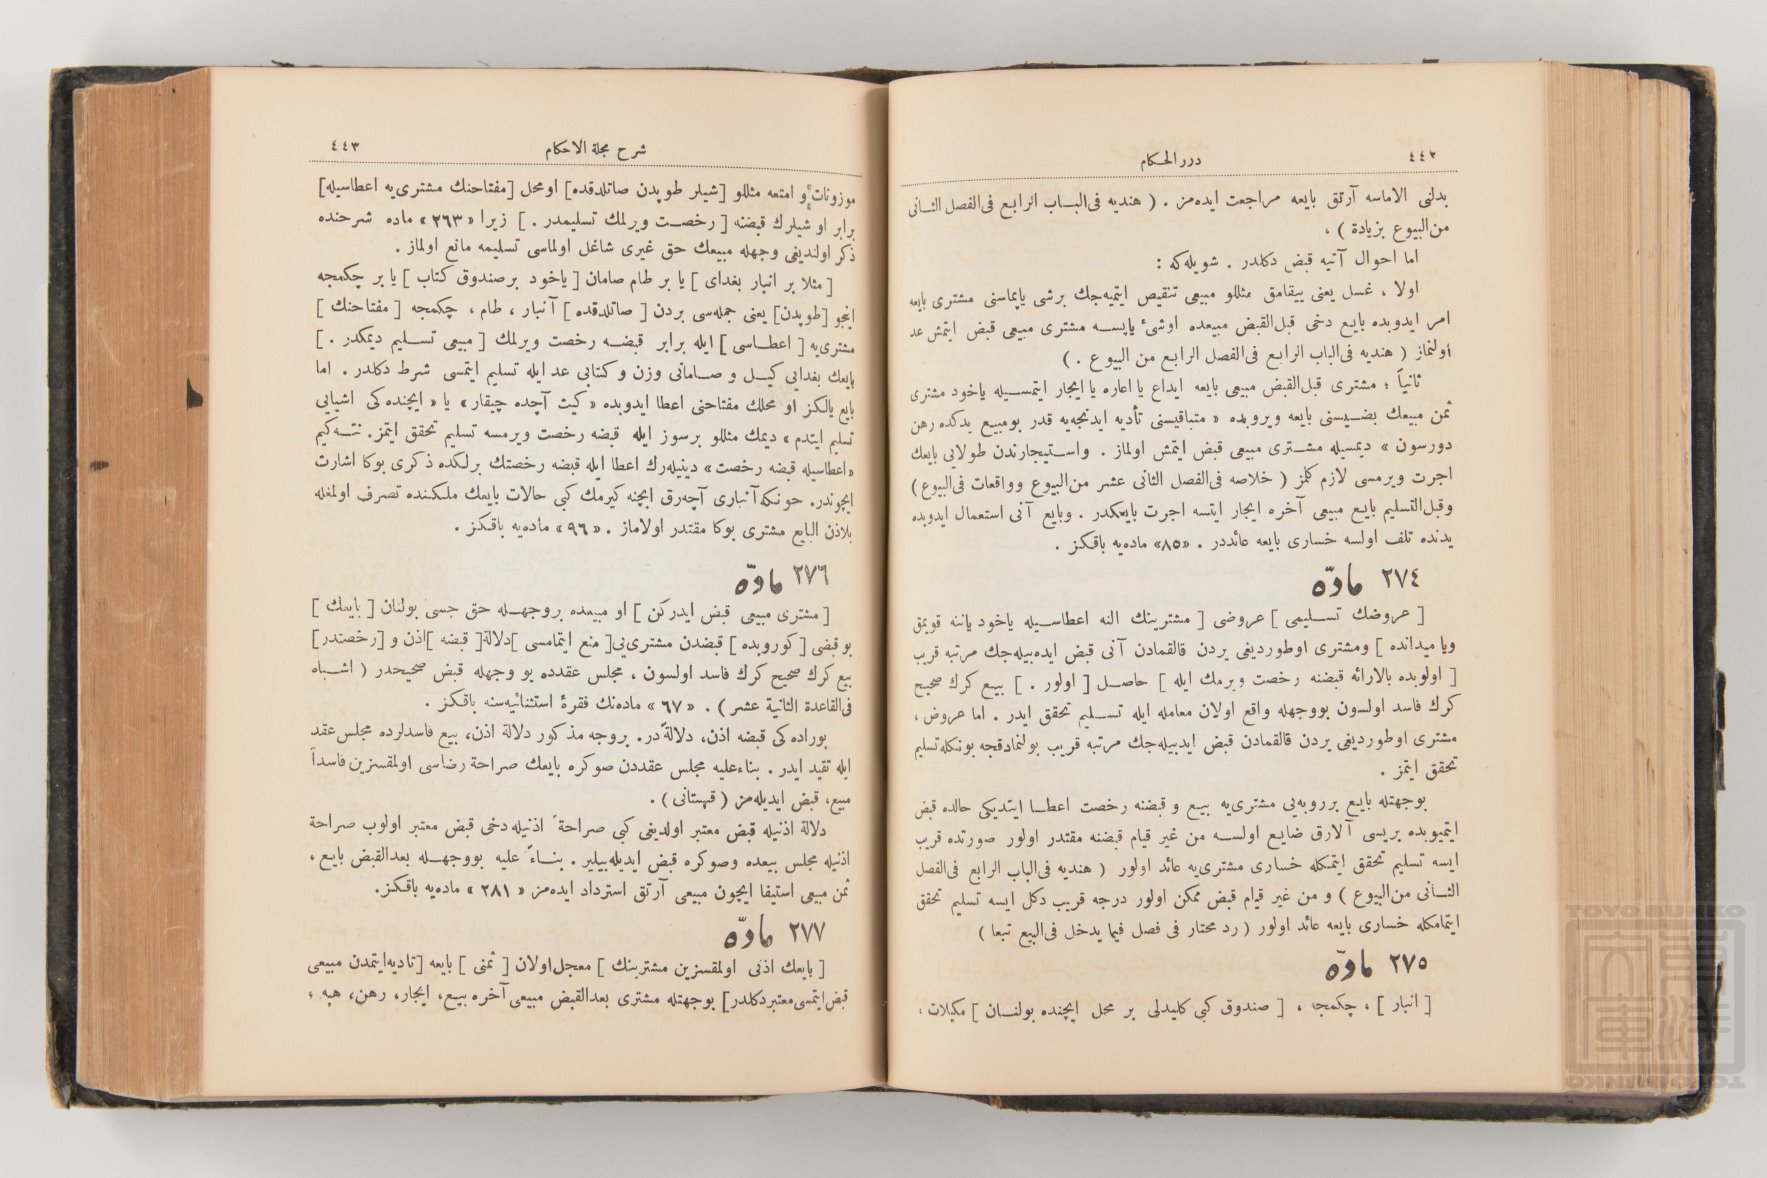 ٤٤٢
دررالحـكام
بدلنى الاماسه آرتق بايعه مراجعت ايده‌مز . ( هنديه فى‌البـاب الرابع فى‌الفصل الثـانى
من‌البيوع بزيادة ) .
اما احوال آتيه قبض دكلدر . شويله‌كه :
اولا ، غسل يعنى ييقامق مثللو مبيعى تنقيص ايتميه‌جك برشى ياپماسنى مشترى بايعه
امر ايدوبده بايع دخى قبل‌القبض مبيعده اوشئ ياپسه مشترى مبيعى قبض ايتمش عد
اولنماز ( هنديه فى‌الباب الرابع فى‌الفصل الرابع من البيوع . )
ثانياً ؛ مشترى قبل‌القبض مبيعى بايعه ايداع يا اعاره يا ايجار ايتمسيله ياخود مشترى
ثمن مبيعك بعضيسنى بايعه ويروبده « متباقيسنى تأديه ايدنجه‌يه قدر بومبيع يدكده رهن
دورسون » ديمسيله مشترى مبيعى قبض ايتمش اولماز . واستيجارندن طولايى بايعك
اجرت ويرمسى لازم كلمز ( خلاصه فى‌الفصل الثانى عشر من‌البيوع وواقعات فى‌البيوع )
وقبل‌التسليم بايع مبيعى آخره ايجار ايتسه اجرت بايعكدر . وبايع آنى استعمال ايدوبده
يدنده تلف اولسه خسارى بايعه عائددر . «٨٥» ماده‌يه باقكز .
٢٧٤ مادّه
[ عروضك تسليمى ] عروضى [ مشترينك النه اعطاسيله ياخود ياننه قويمق
ويا ميدانده ] ومشترى اوطورديغى يردن قالقمادن آنى قبض ايده‌بيله‌جك مرتبه قريب
[ اولوبده بالارائه قبضنه رخصت ويرمك ايله ] حاصل [ اولور . ] بيع كرك صحيح
كرك فاسد اولسون بووجهله واقع اولان معامله ايله تسليم تحقق ايدر . اما عروض ،
مشترى اوطورديغى يردن قالقمادن قبض ايدبيله‌جك مرتبه قريب بولنمادقجه بونكله تسليم
تحقق ايتمز .
بوجهتله بايع برروبه‌يى مشترى‌يه بيع و قبضنه رخصت اعطا ايتديكى حالده قبض
ايتميوبده بريسى آلارق ضايع اولسه من غير قيام قبضنه مقتدر اولور صورتده قريب
ايسه تسليم تحقق ايتمكله خسارى مشترى‌يه عائد اولور ( هنديه فى‌الباب الرابع فى‌الفصل
الثـانى من‌البيوع ) و من غير قيام قبض ممكن اولور درجه قريب دكل ايسه تسليم تحقق
ايتمامكله خسارى بايعه عائد اولور ( رد محتار فى فصل فيما يدخل فى‌البيع تبعا )
٢٧٥ مادّه
[ انبار ] ، چكمجه ، [ صندوق كبى كليدلى بر محل ايچنده بولنـان ] مكيلات ،
شرح مجلة الاحكام
٤٤٣
موزونات و امتعه مثللو [شيلر طوپدن صاتلدقده] او محل [مفتاحنك مشترى‌يه اعطاسيله]
برابر او شيلرك قبضنه [ رخصت ويرلمك تسليمدر . ] زيرا «٢٦٣» ماده شرحنده
ذكر اولنديغى وجهله مبيعك حق غيرى شاغل اولماسى تسليمه مانع اولماز .
[ مثلا بر انبار بغداى ] يا بر طام صامان [ ياخود برصندوق كتاب ] يا بر چكمجه
اينجو [طوپدن] يعنى جمله‌سى بردن [ صاتلدقده ] آنبار ، طام ، چكمجه [ مفتاحنك ]
مشترى‌يه [ اعطـاسى ] ايله برابر قبضه رخصت ويرلمك [ مبيعى تسليم ديمكدر . ]
بايعك بغدايى كيل و صامانى وزن و كتابى عد ايله تسليم ايتمسى شرط دكلدر . اما
بايع يالكز او محلك مفتاحنى اعطا ايدوبده «كيت آچده چيقار» يا «ايچنده‌كى اشيايى
تسليم ايتدم» ديمك مثللو برسوز ايله قبضه رخصت ويرمسه تسليم تحقق ايتمز. نته‌كيم
«اعطاسيله قبضه رخصت» دينيله‌رك اعطا ايله قبضه رخصتك برلكده ذكرى بوكا اشارت
ايچوندر. چونكه آنبارى آچه‌رق ايچنه كيرمك كبى حالات بايعك ملكنده تصرف اولمغله
بلاذن البايع مشترى بوكا مقتدر اولاماز . «٩٦» ماده‌يه باقكز .
٢٧٦ مادّه
[ مشترى مبيعى قبض ايدركن ] او مبيعده بروجهله حق حبسى بولنان [ بايعك ]
بو قبضى [ كوروبده ] قبضدن مشترى‌يى [ منع ايتمامسى ] دلالة [ قبضه ] اذن و [رخصتدر]
بيع كرك صحيح كرك فاسد اولسون ، مجلس عقدده بو وجهله قبض صحيحدر ( اشباه
فى‌القاعدة الثانية عشر ) . «٦٧» ماده‌نك فقرهٔ استثنائيه‌سنه باقكز .
بوراده‌كى قبضه اذن، دلالةً در. بروجه مذكور دلالة اذن، بيع فاسدلرده مجلس عقد
ايله تقيد ايدر . بناءعليه مجلس عقددن صوكره بايعك صراحة رضاسى اولمقسزين فاسداً
مبيع، قبض ايديله‌مز ( قهستانى ) .
دلالة اذنيله قبض معتبر اولديغى كبى صراحة اذنيله دخى قبض معتبر اولوب صراحة
اذنيله مجلس بيعده وصوكره قبض ايديله‌بيلير . بناءً عليه بووجهله بعدالقبض بايع ،
ثمن مبيعى استيفا ايچون مبيعى آرتق استرداد ايده‌مز «٢٨١» ماده‌يه باقكز.
٢٧٧ مادّه
[ بايعك اذنى اولمقسزين مشترينك ] معجل‌اولان [ ثمنى ] بايعه [تاديه‌ايتمدن مبيعى
قبض ايتمسى معتبر دكلدر] بوجهتله مشترى بعدالقبض مبيعى آخره بيع، ايجار، رهن، هبه ،
TOYO BUNKO
東洋文庫
TOYO BUNKO